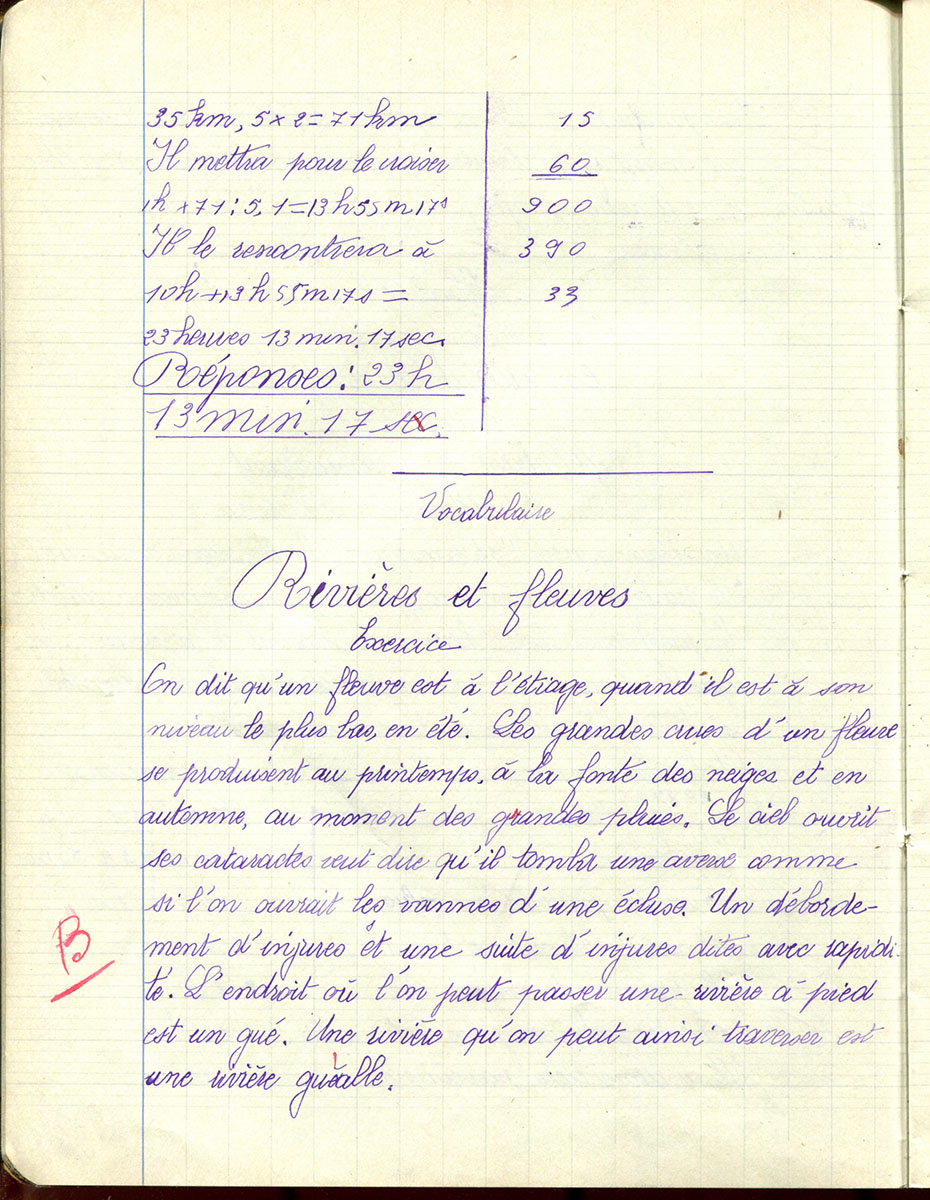 35 km, 5 x 2 = 71 km
Il mettra pour le croiser
1h x 71 : 5,1 = 13 h 55 m 17 s
Il le rencontrera à
10h + 13 h 55 m 17 s =
23 heures 13 min. 17 sec.
Réponses : 23 h
13 min. 17 sec.
15
60
900
390
33
Vocabulaire
Rivières et fleuves
Exercice
On dit qu'un fleuve est à l'étiage, quand il est à son
niveau le plus bas, en été. Les grandes crues d'un fleuve
se produisent au printemps, à la fonte des neiges et en
automne, au moment des grandes pluies. Le ciel ouvrit
ses cataractes veut dire qu'il tomba une averse comme
si l'on ouvrait les vannes d'une écluse. Un déborde-
ment d'injures et une suite d'injures dites avec rapidi-
té. L'endroit où l'on peut passer une rivière à pied
est un gué. Une rivière qu'on peut ainsi traverser est
une rivière guéable.
B